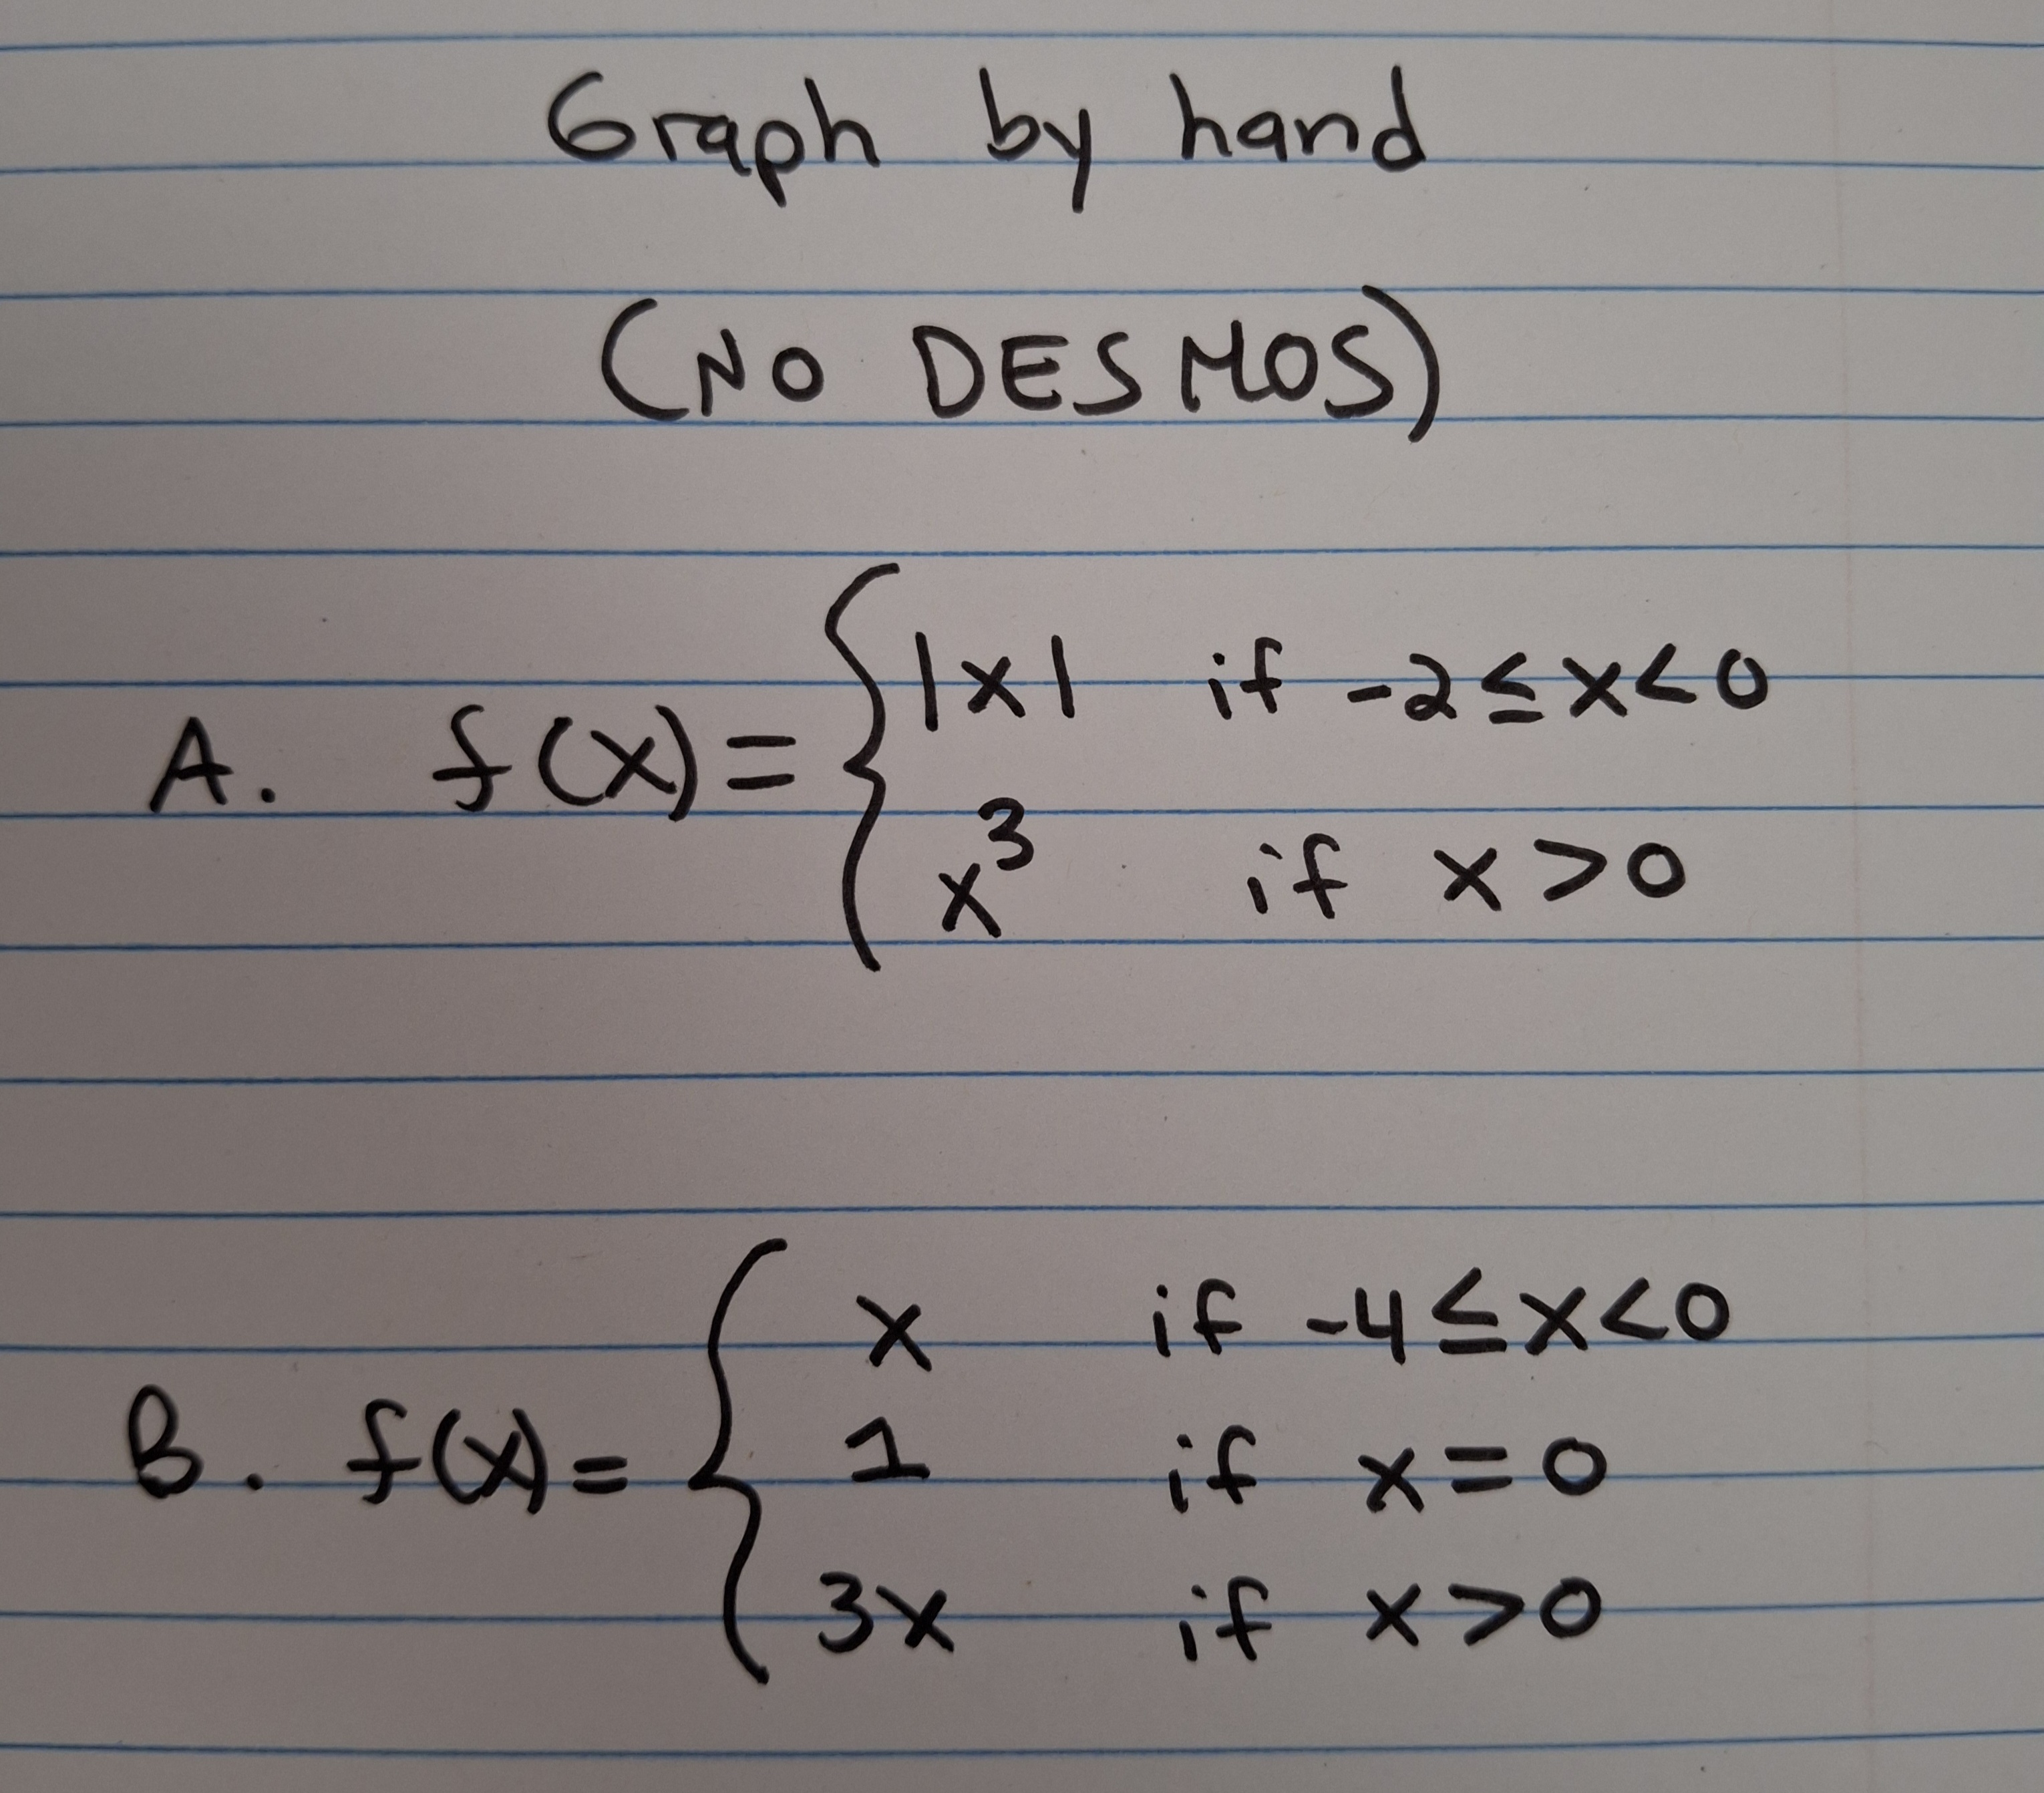 Graph by hand
(NO DESMOS)
A. f(x) = { |x| if -2 ≤ x < 0
x³ if x > 0
B. f(x) = { x if -4 ≤ x < 0
1 if x = 0
3x if x > 0